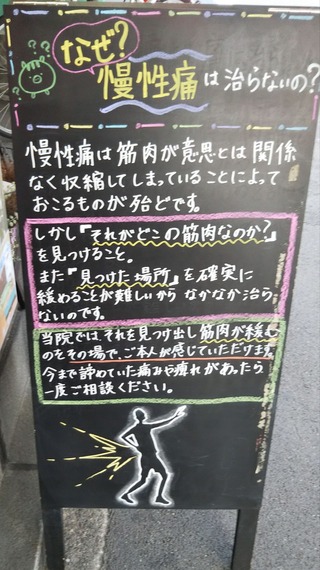 なぜ?
慢性痛は治らないの?
慢性痛は筋肉が意思とは関係
なく収縮してしまっていることによって
おこるものが殆どです。
しかし『それがどこの筋肉なのか?』
を見つけること。
また『見つけた場所』を確実に
緩めることが難しいからなかなか治ら
ないのです。
当院では、それを見つけ出し筋肉が緩む
のをその場で、ご本人が感じていただけます。
今まで諦めていた痛みや痺れがあったら
一度ご相談ください。